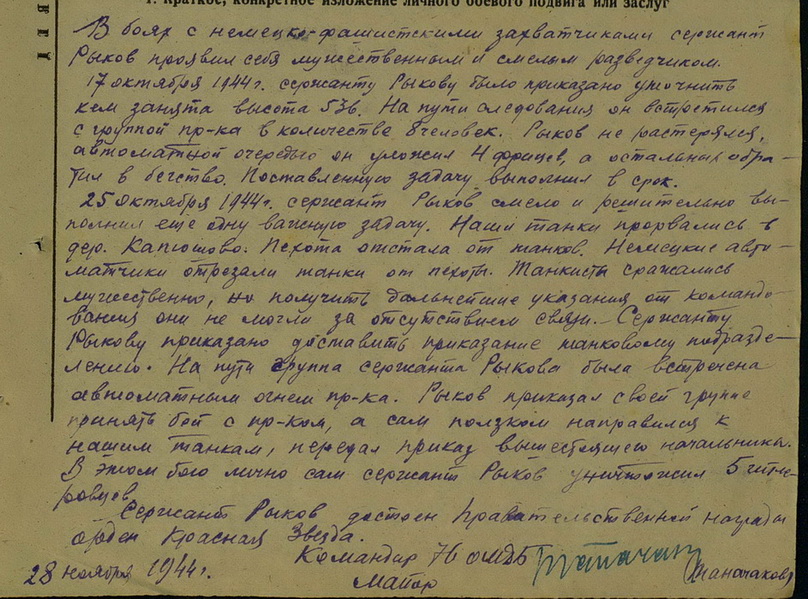 I. Краткое, конкретное изложение личного боевого подвига или заслуг
В боях с немецко-фашистскими захватчиками сержант
Рыков проявил себя мужественным и смелым разведчиком.
17 октября 1944 г. сержанту Рыкову было приказано уточнить
кем занята высота 536. На пути следования он встретился
с группой пр-ка в количестве 8 человек. Рыков не растерялся,
автоматной очередью он уложил 4 фрицев, а остальных обра-
тил в бегство. Поставленную задачу выполнил в срок.
25 октября 1944 г. сержант Рыков смело и решительно вы-
полнил еще одну важную задачу. Наши танки прорвались в
дер. Капюшово. Пехота отстала от танков. Немецкие авто-
матчики отрезали танки от пехоты. Танкисты сражались
мужественно, но получить дальнейшие указания от командо-
вания они не могли за отсутствием связи. – Сержанту
Рыкову приказано доставить приказание танковому подразде-
лению. На пути группа сержанта Рыкова была встречена
автоматным огнем пр-ка. Рыков приказал своей группе
принять бой с пр-ком, а сам ползком направился к
нашим танкам, передал приказ вышестоящего начальника.
В этом бою лично сам сержант Рыков уничтожил 5 гитле-
ровцев.
Сержант Рыков достоен Правательственной награды
орден Красная Звезда.
Командир 76 омдб
28 ноября 1944 г. Майор